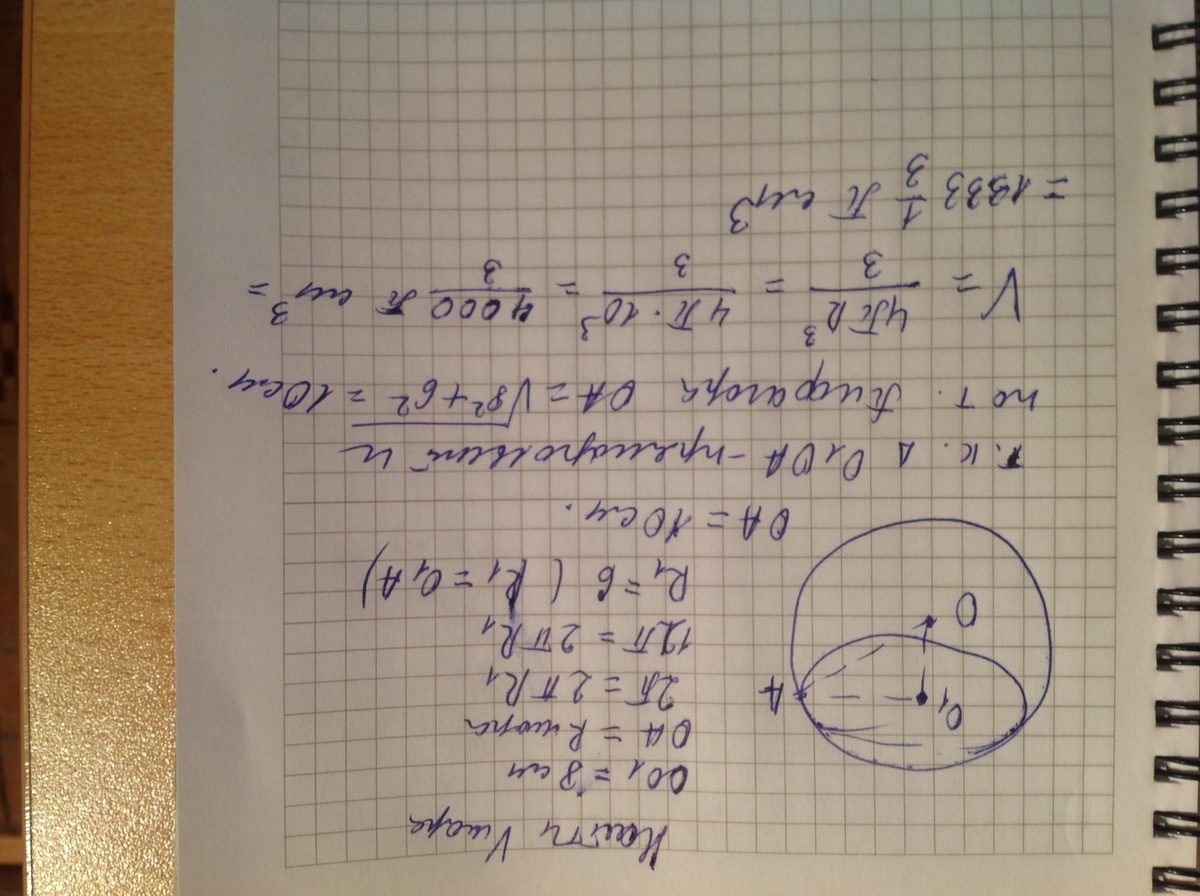 Найти Vшара
OO₁ = 8 см
OA = Rшара
2π = 2πR₁
12π = 2πR₁
R₁ = 6 (R₁ = O₁A)
OA = 10 см.
O₁
A
O
т.к. △ O₁OA - прямоугольный и
по т. Пифагора OA = √8²+6² = 10 см.
V = 4πR³/3 = 4π·10³/3 = 4000/3 π см³ =
= 1333 1/3 π см³